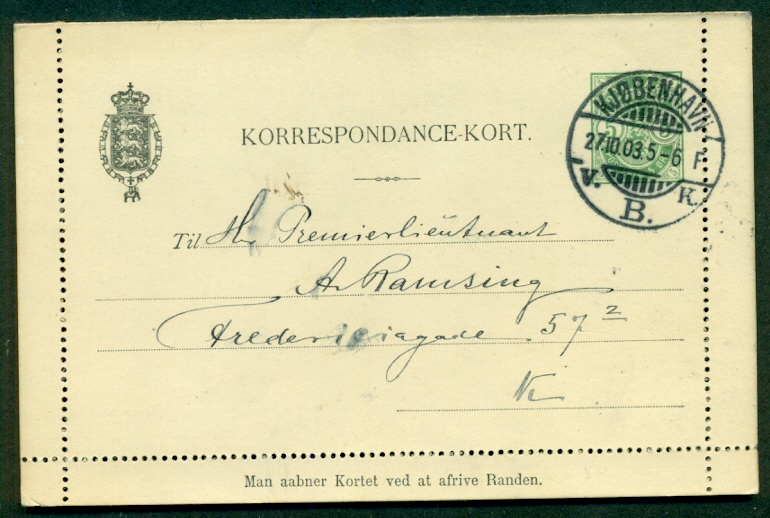 KORRESPONDANCE-KORT.
KJØBENHAVN
27.10.03. 5-6 F
V. B. K.
5
Til Hr Premierlieutnant
A. Ramsing
Fredericiagade 57²
Man aabner Kortet ved at afrive Randen.